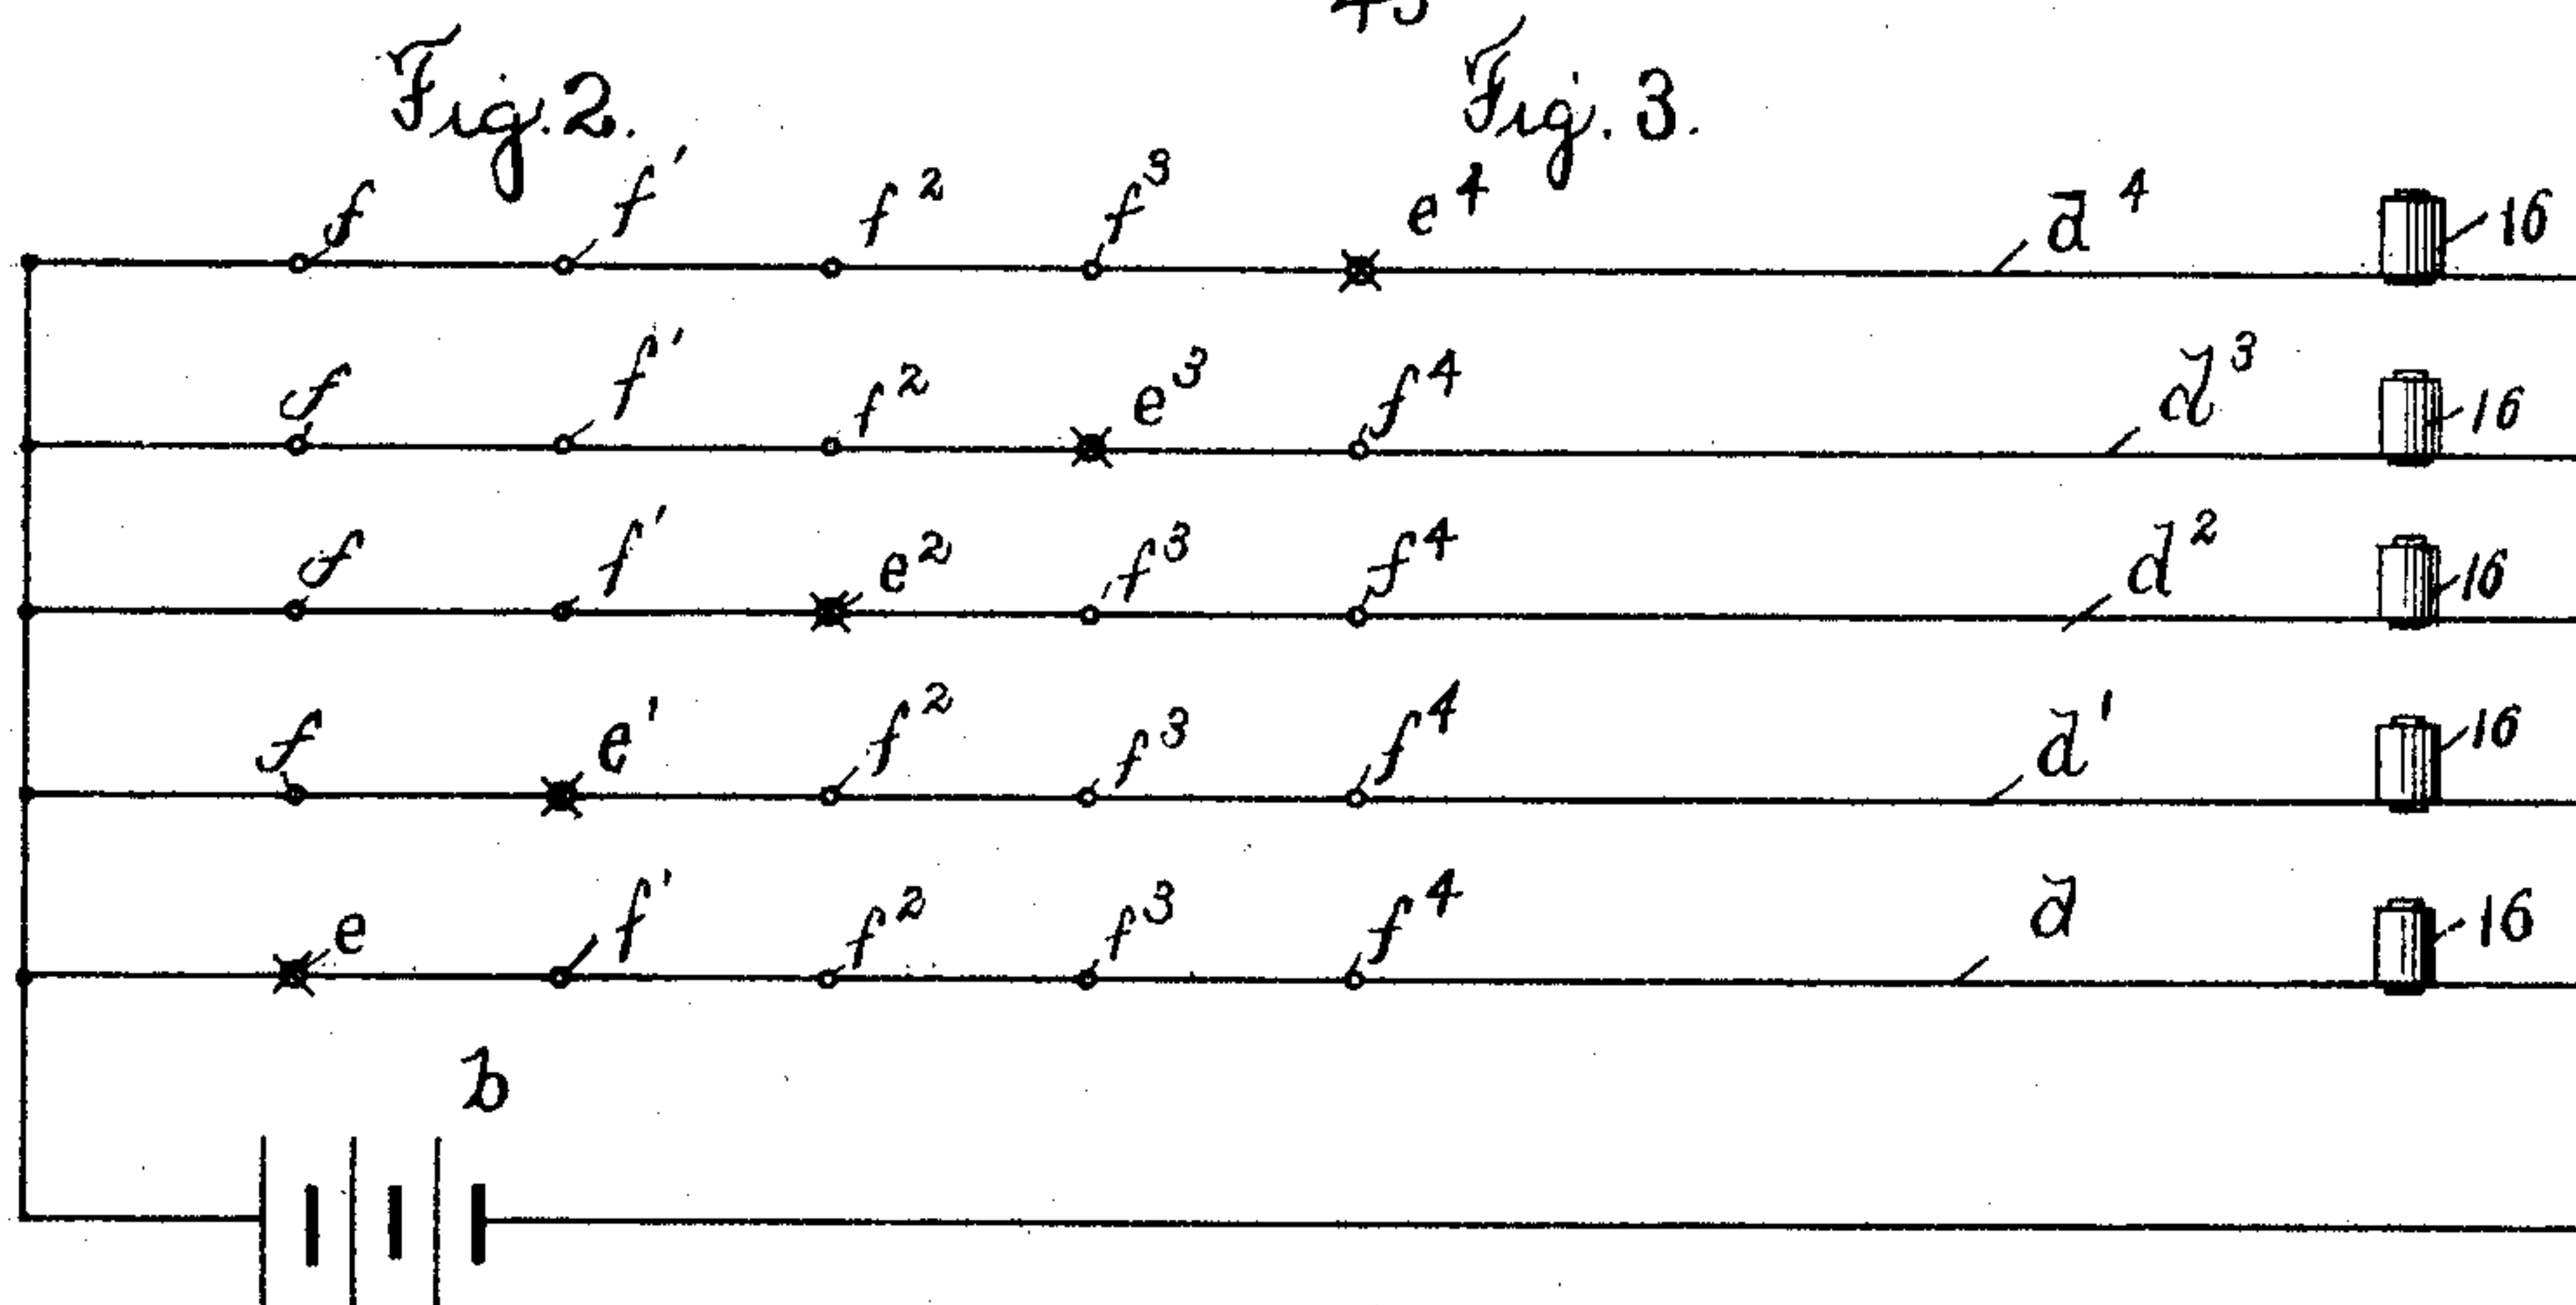 Fig. 2. Fig. 3.
f f' f² f³ e⁴ d⁴ 16
f f' f² e³ f⁴ d³ 16
f f' e² f³ f⁴ d² 16
f e' f² f³ f⁴ d' 16
e f' f² f³ f⁴ d 16
b